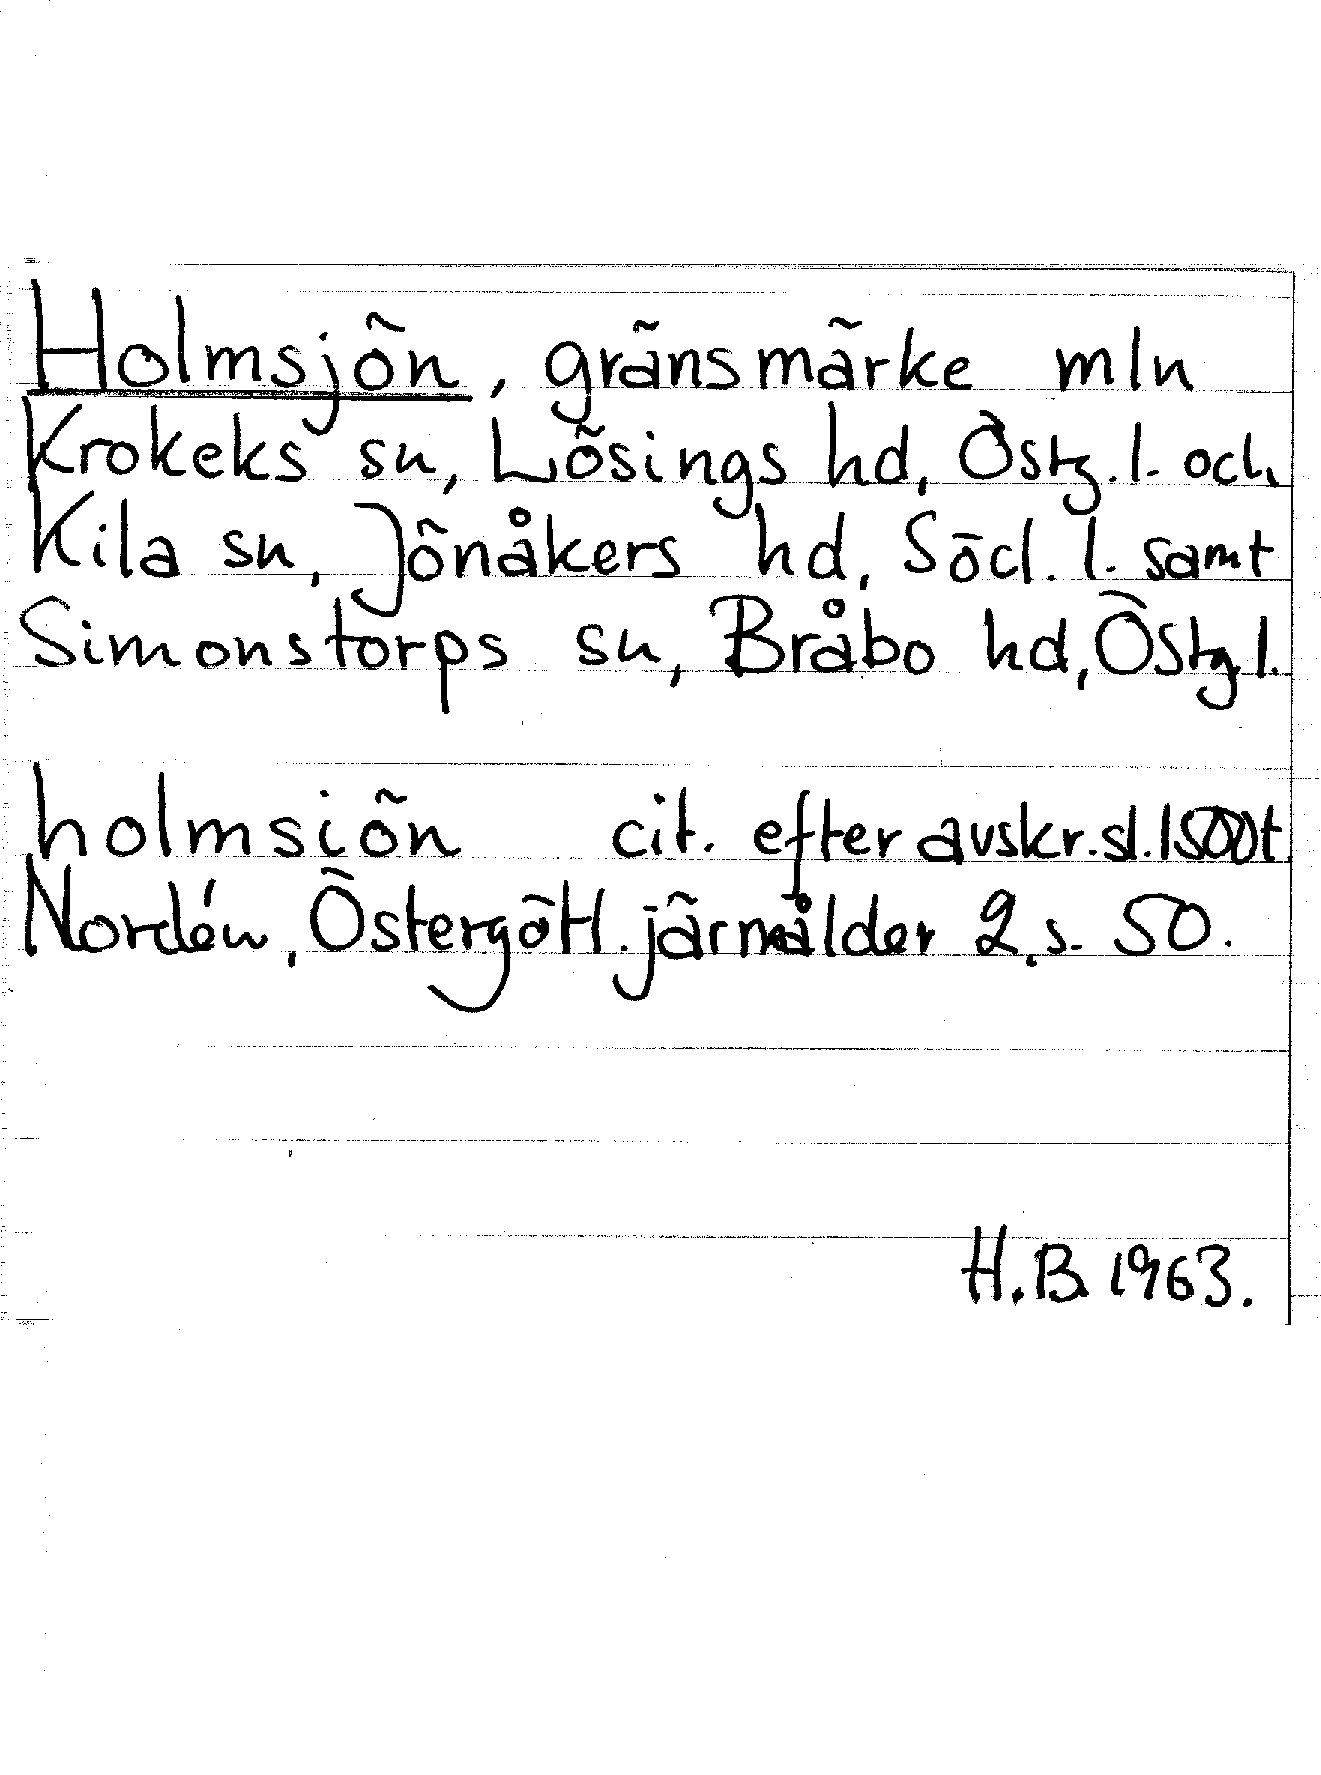 Holmsjön, gränsmärke mln
Krokeks sn, Lösings hd, Östg. l. och
Kila sn, Jönåkers hd, Söd. l. samt
Simonstorps sn, Bråbo hd, Östg l.
holmsiön cit. efter avskr. sl. 1500t
Nordén, Östergötl. järnålder 2, s. 50.
H.B. 1963.